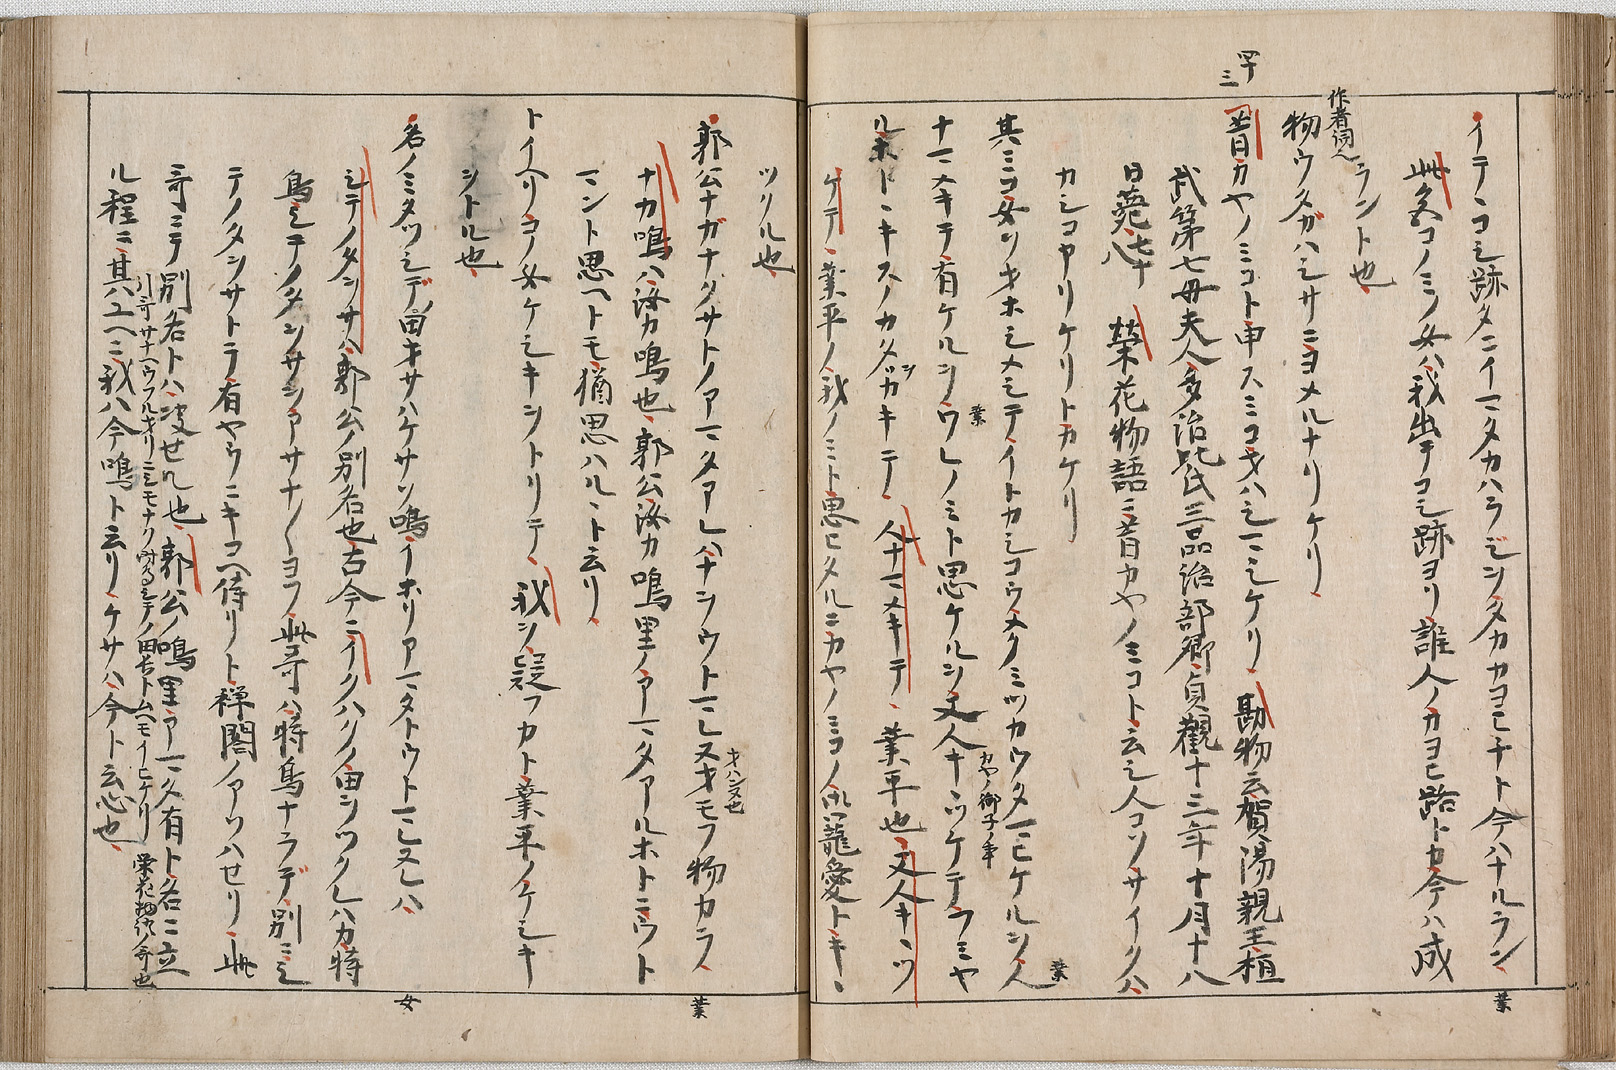 イテヽコシ跡タニイマタカハラジンタカカヨヒチト今ハナルラン
業
此タヘコノミシ女ハ我出テコシ跡ヨリ誰人ノカヨヒ路トカ今ハ成
ラント也
作者詞
物ウタガハシサニヨメルナリケリ
四十三
昔カヤノミコト申スミコヲハシマシケリ 勘物云賀陽親王桓
武第七母夫人多治比氏三品治部卿貞観十三年十月十八
日薨七十八 栄花物語ニ昔カヤノミコト云シ人コソサイクハ
カシコヤリケリトカケリ
其ミコ女ヲオホシメシテイトカシコウメクミツカウタマヒケルヲ人
業
ナマメキテ有ケルヲワレノミト思ケルヲ又人キヽツケテフミヤ
業
カヤノ御子ノ事
ルホトヽキスノカタヲカキテ 人ナマメキテ 業平也 又人キヽツ
ケテ 業平ノ我ノミト思ヒタルニカヤノミコノ御寵愛トキヽ
ツル也
郭公ナカナクサトノアマタアレハナヲウトマレヌオモフ物カラ
オハンヌ也
業
ナカ鳴ハ汝カ鳴也 郭公汝カ鳴里ノアマタアルホトニウト
マント思ヘトモ猶思ハルヽト云リ
トイヘリコノ女ケシキヲトリテ 我ヲ疑フカト業平ノケシキ
ヲトル也
名ノミタツシデノ田オサハケサソ鳴イホリアマタトウトマレヌレハ
女
シテノタヲサハ郭公ノ別名也古今ニイクハクノ田ヲツクレハカ時
鳥シテノタヲサヲアサナ〱ヨフ 此哥ハ時鳥ナラデ別ニシ
テノタヲサトテ有ヤウニキコヘ侍リト禅閤ノアソハセリ 此
哥ニテ別名トハ決せル也 郭公ノ鳴里アマタ有ト名ニ立
ル程ニ其ユヘニ我ハ今鳴ト云リ ケサハ今ト云心也
栄花物語ノ哥也